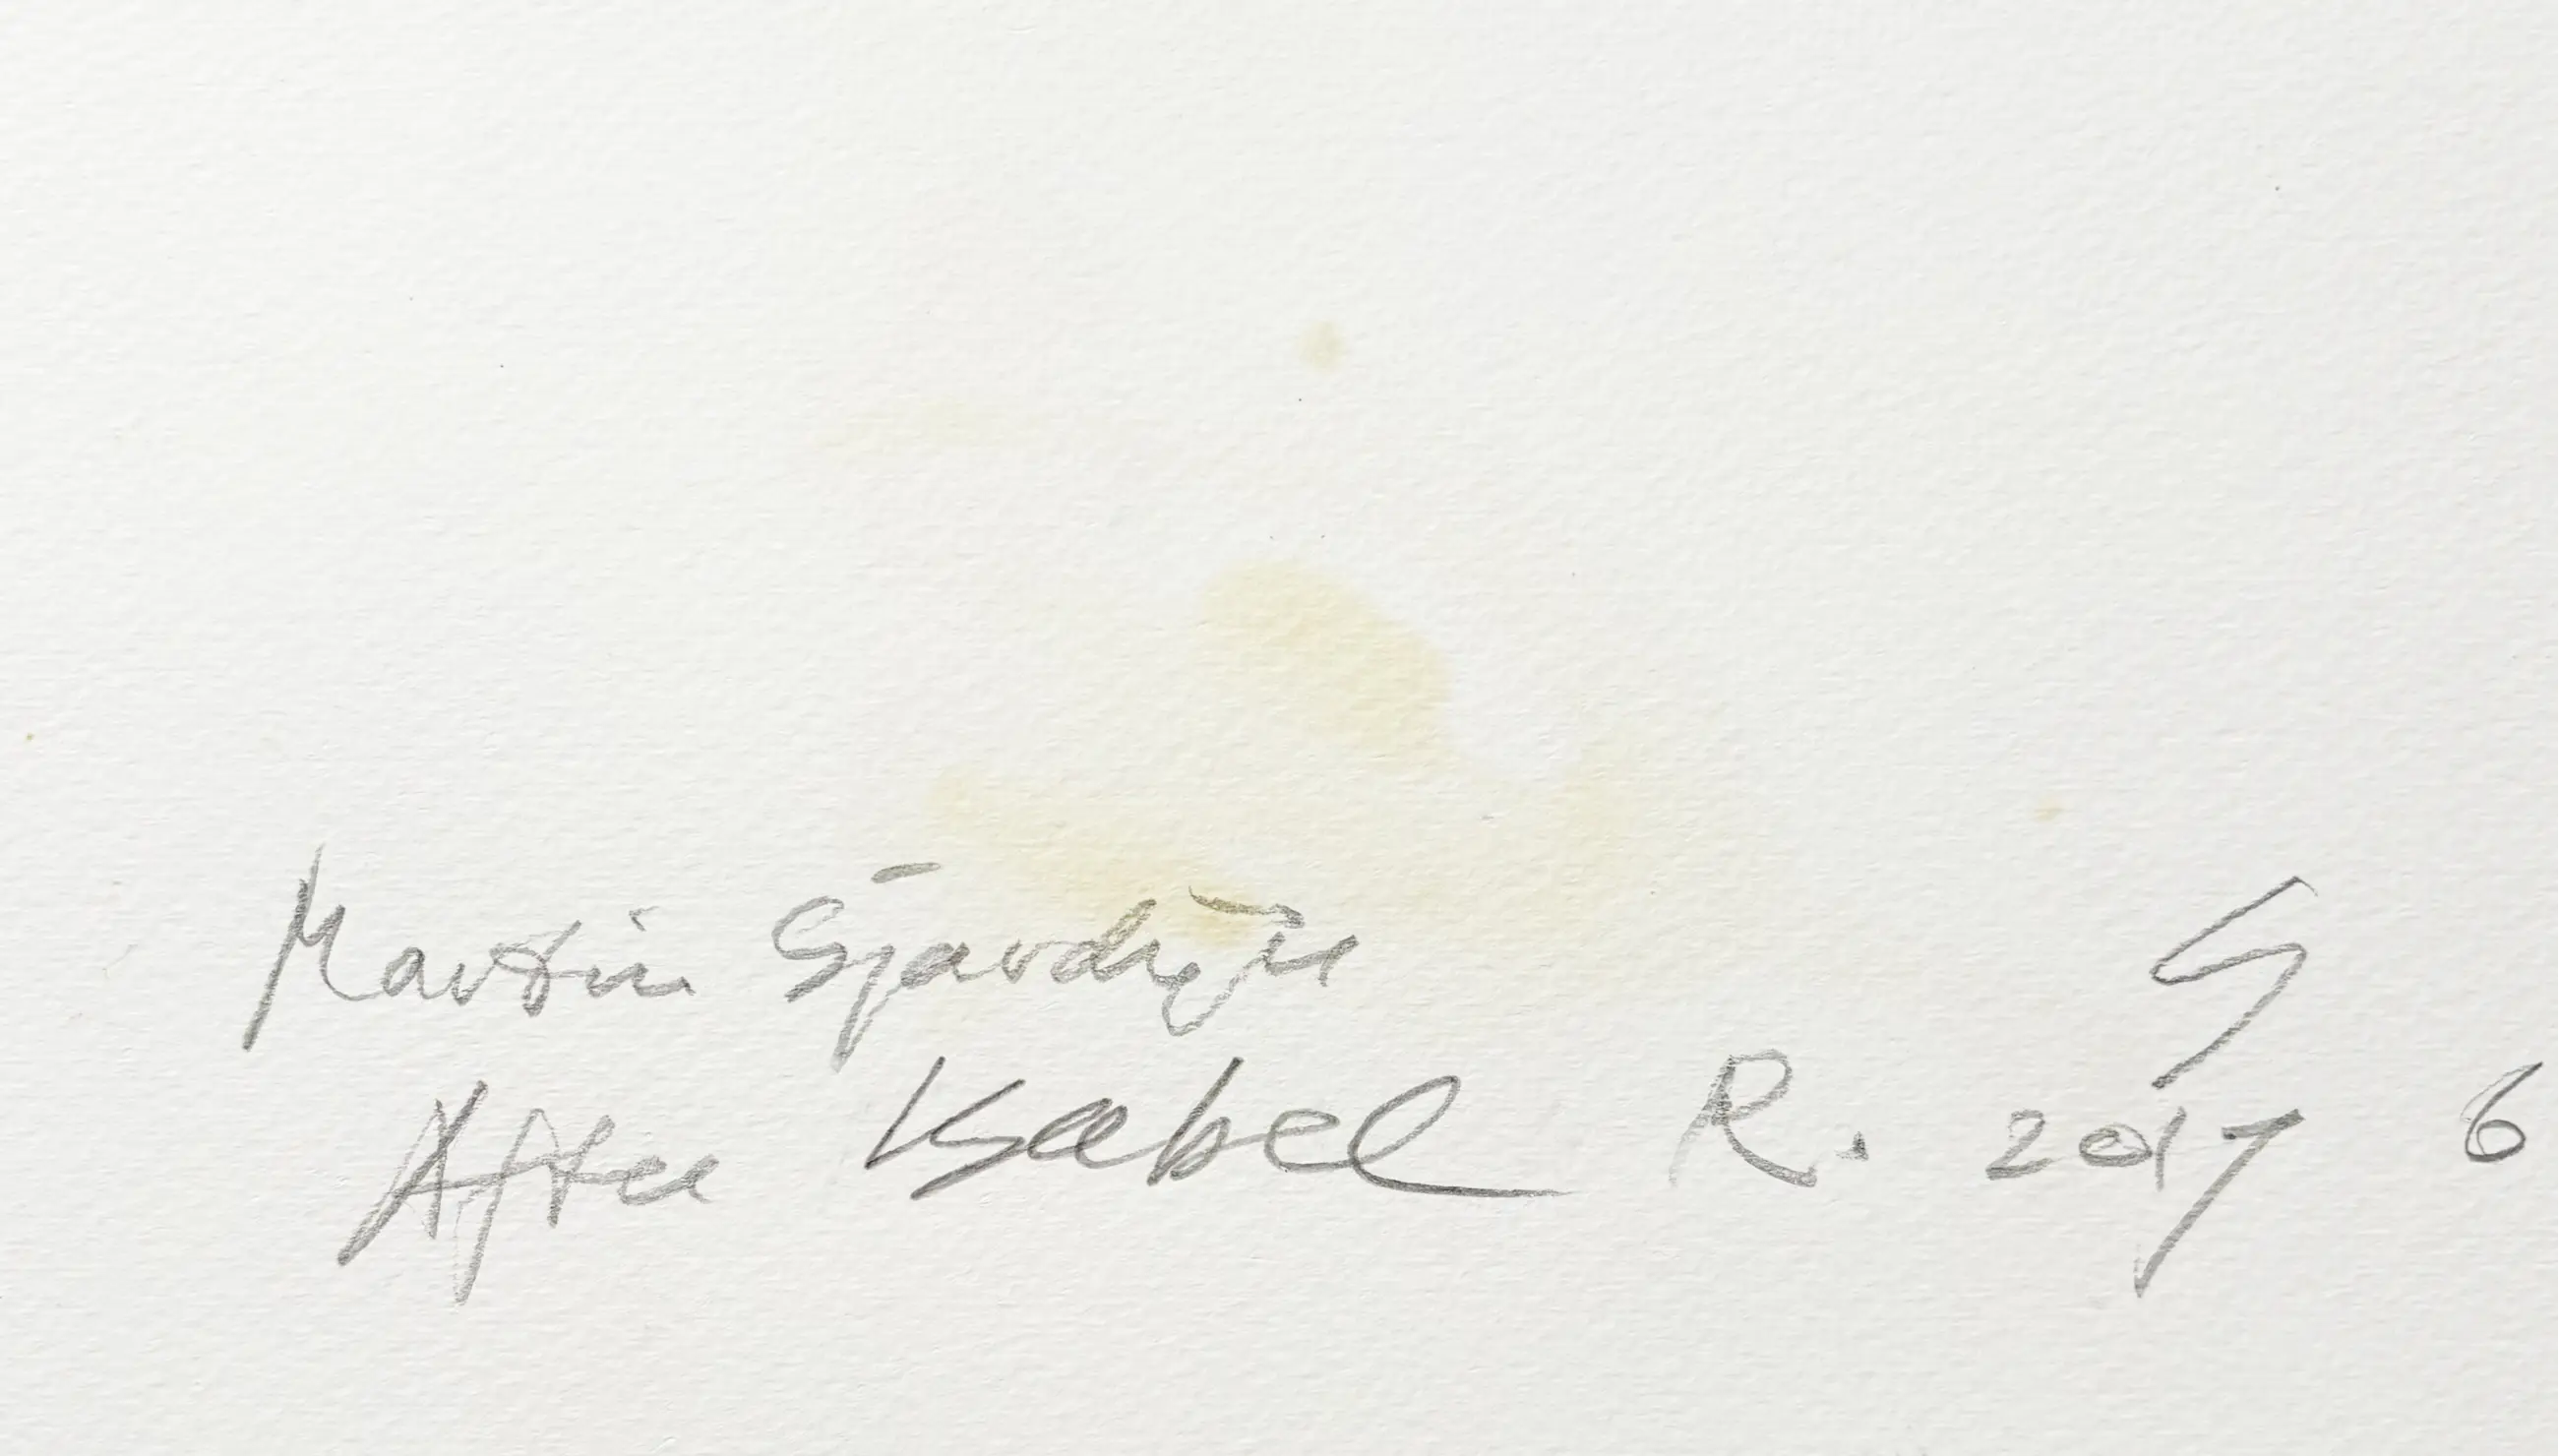 Martin
After Isabel R. 2017 6